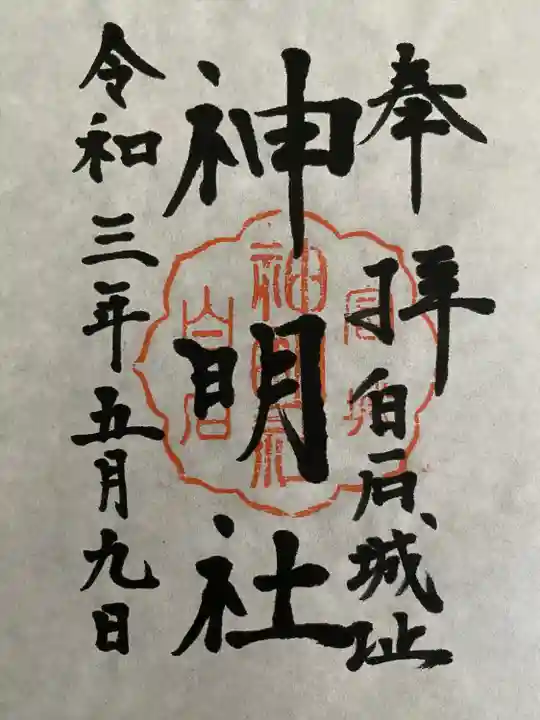 奉拝
白石城址
神明社
令和三年五月九日
神明社
白石